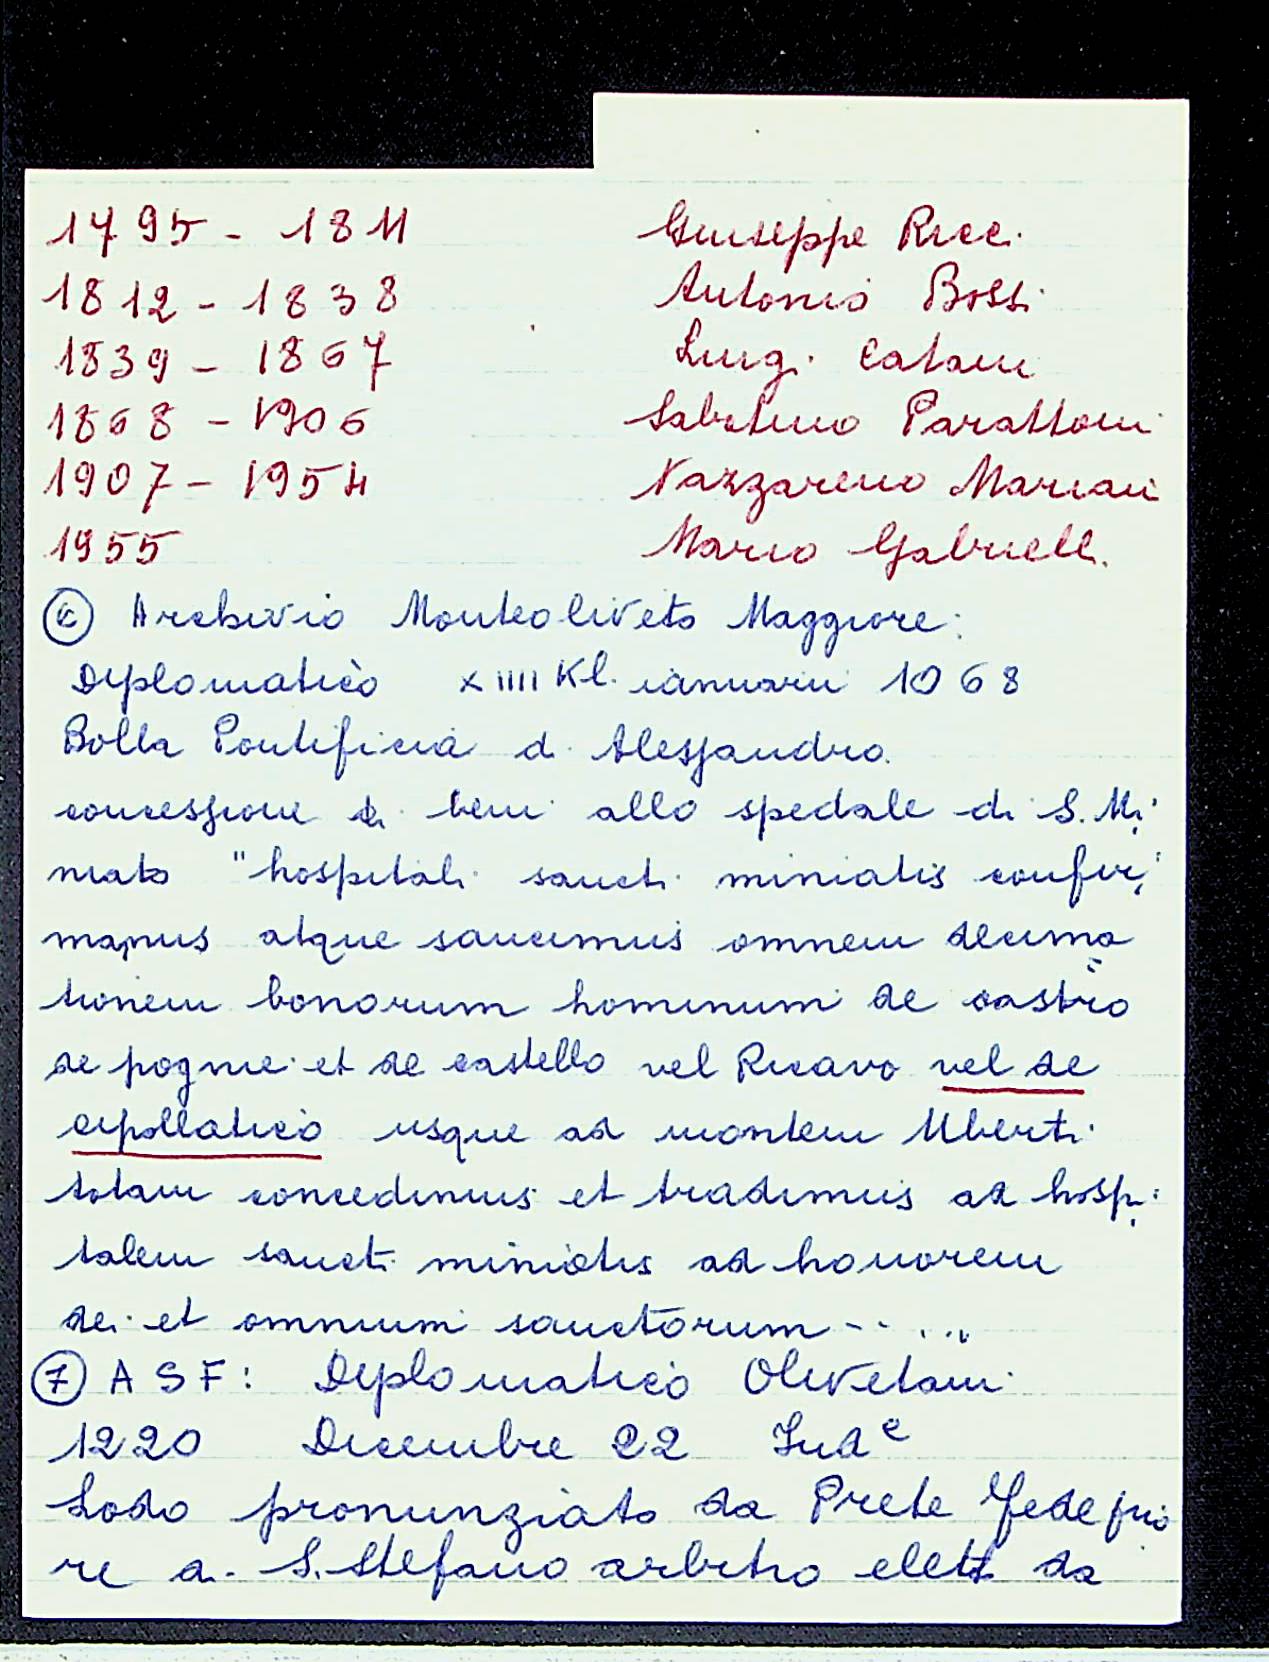 1795 - 1811 Giuseppe Ricci
1812 - 1838 Antonio Bossi
1839 - 1867 Luigi Catani
1868 - 1906 Sabatino Parattoni
1907 - 1954 Nazzareno Mariani
1955 Mario Gabrielli
⑥ Archivio Monteoliveto Maggiore:
Diplomatico XIIII Kl. ianuarii 1068
Bolla Pontificia di Alessandro.
concessione di beni allo spedale di S. Mi
niato "hospitali sancti miniatis confir
mamus atque sancimus omnem decima
tionem bonorum hominum de castro
de pogne et de castello vel Ricavo vel de
cipollatico usque ad montem Uberti
totam concedimus et tradimus ad hospi
talem sancti miniatis ad honorem
dei et omnium sanctorum - - . . "
⑦ A S F: Diplomatico Olivetani
1220 Dicembre 22 Ind e
Lodo pronunziato da Prete Fede prio
re di S. Stefano arbitro eletto da